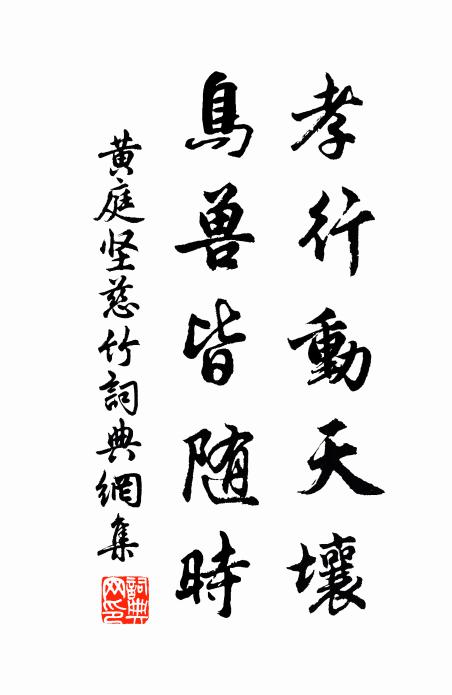 孝行動天壤
鳥兽皆随時
黄庭坚慈竹詞典網集
詞典网印